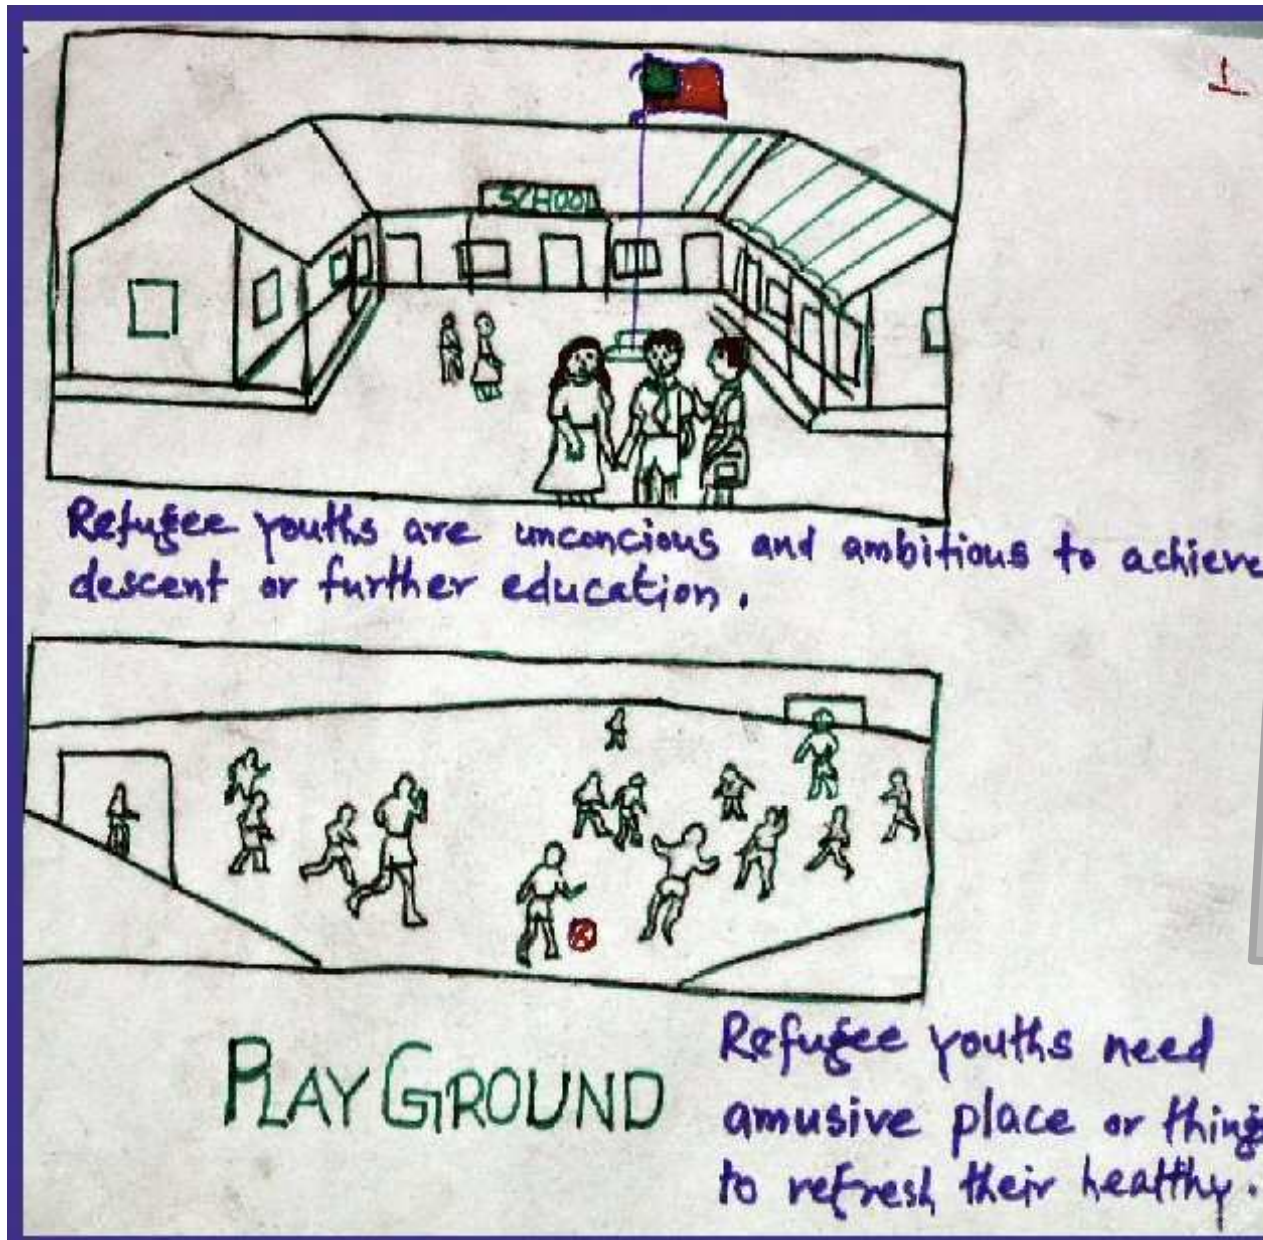 1
SCHOOL
Refugee youths are unconcious and ambitious to achieve
descent or further education.
PLAY GROUND
Refugee youths need
amusive place or things
to refresh their healthy.